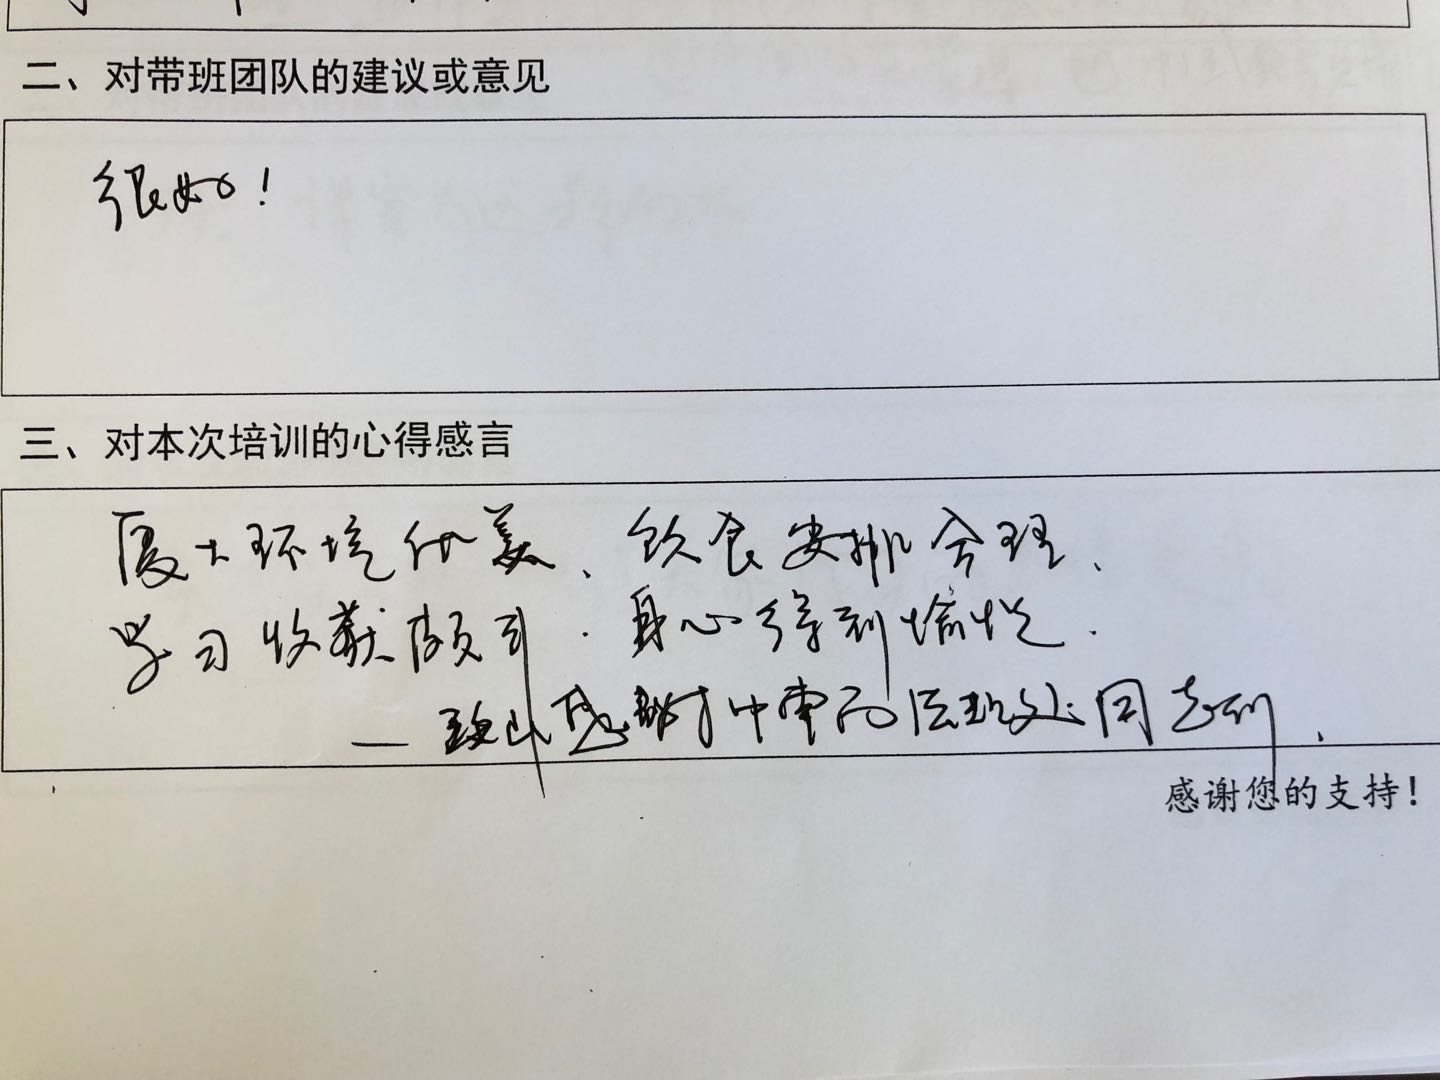 二、对带班团队的建议或意见
很好！
三、对本次培训的心得感言
厦大环境优美、饮食安排合理、
学习收获颇丰．身心得到愉悦．
感谢 同志们．
感谢您的支持！